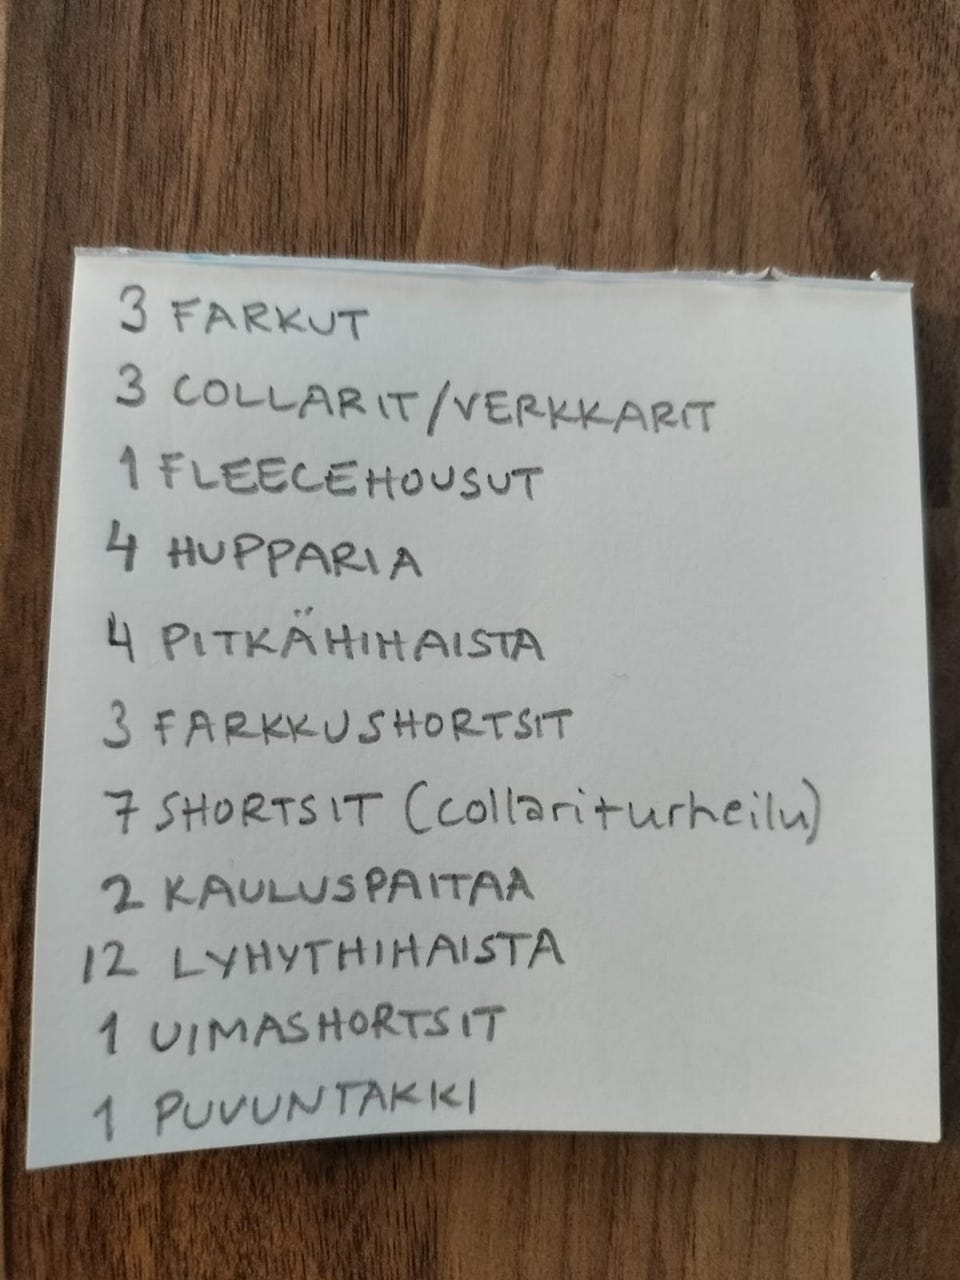 3 FARKUT
3 COLLARIT/VERKKARIT
1 FLEECEHOUSUT
4 HUPPARIA
4 PITKÄHIHAISTA
3 FARKKUSHORTSIT
7 SHORTSIT (collariturheilu)
2 KAULUSPAITAA
12 LYHYTHIHAISTA
1 UIMASHORTSIT
1 PUVUNTAKKI